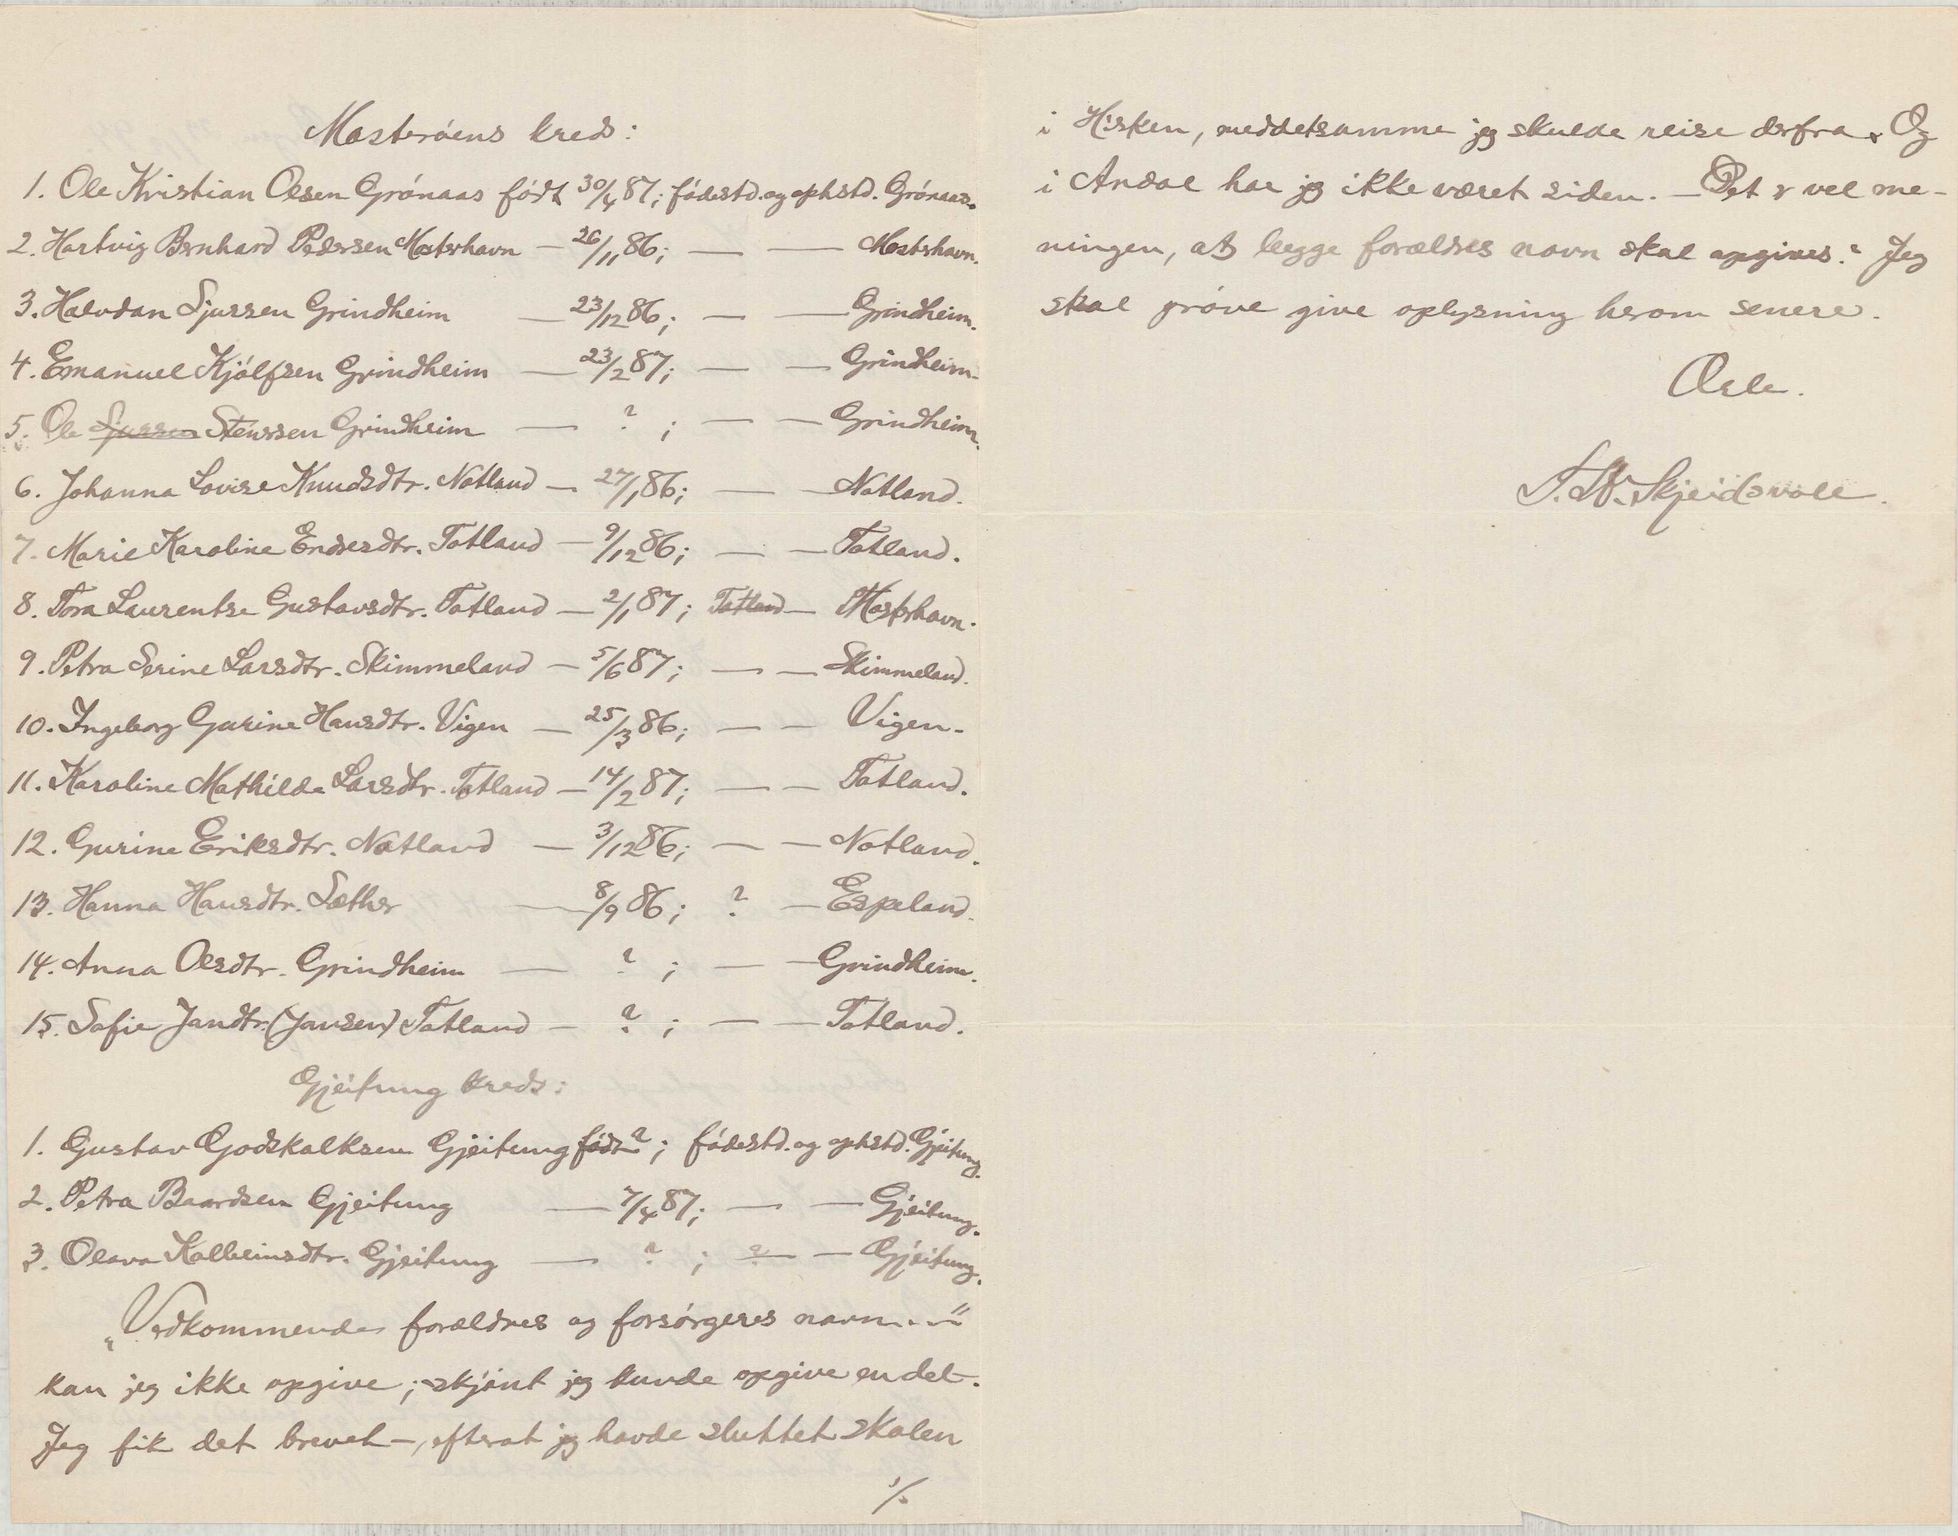 Mosterøens kreds:
1. Ole Kristian Olsen Grønaas født 30/4 87; fødestd. og ophstd. Grønaas.
2. Hartvig Bernhard Pedersen Mosterhavn — 26/11 86; — — Mosterhavn.
3. Halvdan Sjursen Grindheim — 23/12 86; — — Grindheim.
4. Emanuel Kjølfsen Grindheim — 23/2 87; — — Grindheim.
5. Ole Sjursen Stenssen Grindheim — ? ; — — Grindheim.
6. Johanna Lovise Knudsdtr. Notland — 27/1 86; — — Notland.
7. Marie Karoline Endresdtr. Totland — 9/12 86; — — Totland.
8. Tora Laurentse Gustavsdtr. Totland — 2/1 87; Totland — Mosterhavn.
9. Petra Serine Larsdtr. Skimmeland — 5/6 87; — — Skimmeland.
10. Ingeborg Gurine Hansdtr. Vigen — 25/3 86; — — Vigen.
11. Karoline Mathilde Larsdtr. Totland — 14/2 87; — — Totland.
12. Gurine Eriksdtr. Notland — 3/12 86; — — Notland.
13. Hanna Hansdtr. Sæther — 8/9 86; ? — Espeland.
14. Anna Olsdtr. Grindheim — ? ; — — Grindheim.
15. Sofie Jandtr. (Jansen) Totland — ? ; — — Totland.
Gjeitung kreds:
1. Gustav Godskalksen Gjeitung født ? ; fødestd. og ophstd. Gjeitung.
2. Petra Baardsen Gjeitung — 7/4 87; — — Gjeitung.
3. Olava Kolbeinsdtr. Gjeitung — ? ; ? — Gjeitung.
„Vedkommendes forældres og forsørgeres navn..—"
kan jeg ikke opgive; skjønt jeg kunde opgive en del.
Jeg fik det brevet —, efterat jeg havde sluttet skolen
./.
i Hisken, meddetsamme jeg skulde reise derfra. Og
i Andal har jeg ikke været siden. — Det er vel me-
ningen, at begge forældres navn skal opgives? Jeg
skal prøve give oplysning herom senere.
Ærb.
Skjeidsvoll.